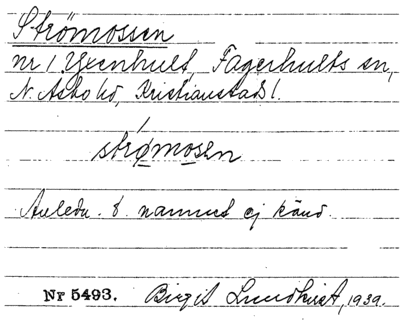 Strömossen
nr 1 Yxenhult, Fagerhults sn,
N. Åsbo hd, Kristianstad l.
strømosen
Anledn. t. namnet ej känd.
Nr 5493. Birgit Lundkvist, 1939.